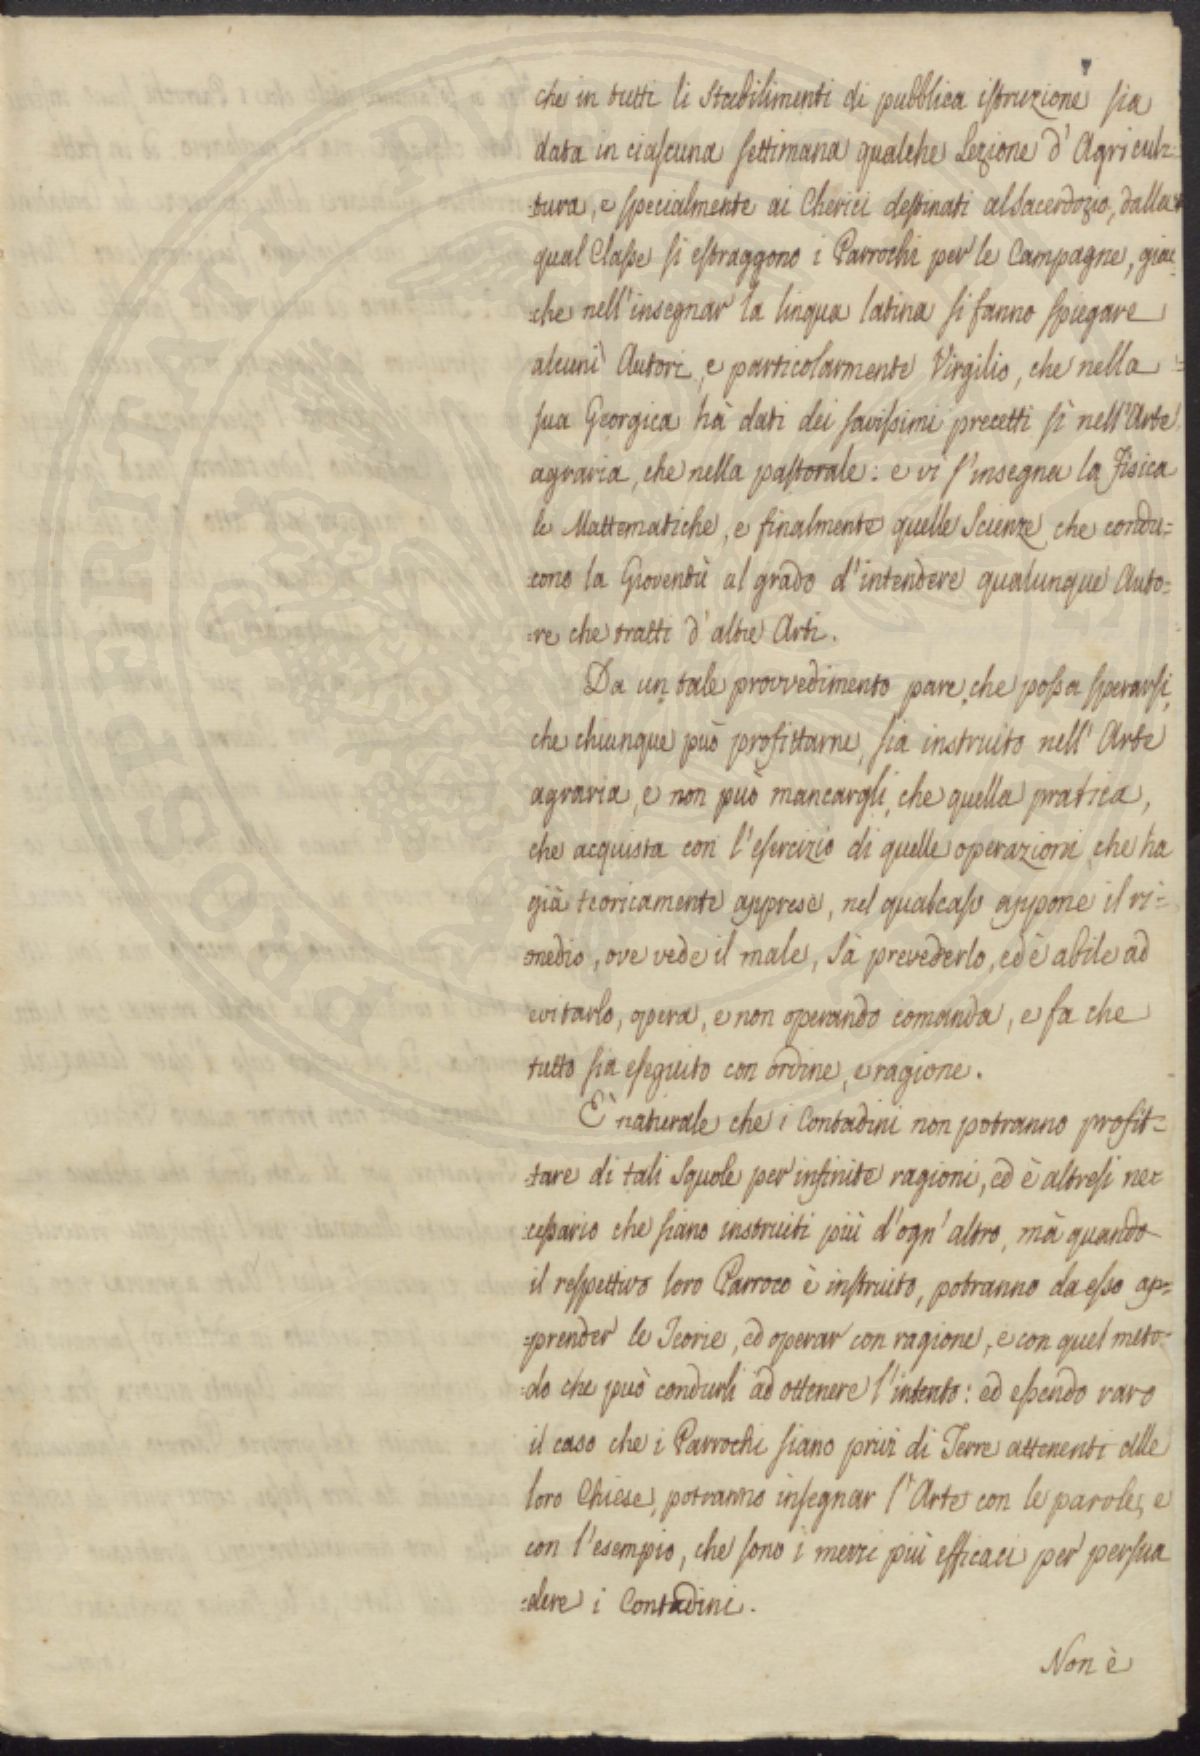 che in tutti li Stabilimenti di pubblica istruzione sia
data in ciascuna settimana qualche Lezione d'Agricul=
=tura, e specialmente ai Cherici destinati al Sacerdozio, dalla
qual Classe si estraggono i Parrochi per le Campagne, giac=
=che nell'insegnar la lingua latina si fanno spiegare
alcuni Autori, e particolarmente Virgilio, che nella
sua Georgica hà dati dei savissimi precetti sì nell'Arte
agraria, che nella pastorale: e vi s'insegna la Fisica
le Mattematiche, e finalmente quelle Scienze, che condu=
=cono la Gioventù al grado d'intendere qualunque Auto=
=re che tratti d'altre Arti.
Da un tale provvedimento pare, che possa sperarsi,
che chiunque può profittarne, sia instruito nell'Arte
agraria, e non può mancargli, che quella pratica,
che acquista con l'esercizio di quelle operazioni, che ha
già teoricamente apprese, nel qual caso appone il ri=
=medio, ove vede il male, Sà prevederlo, ed è abile ad
evitarlo, opera, e non operando comanda, e fa che
tutto sia eseguito con ordine, e ragione.
È naturale che i Contadini non potranno profit=
=tare di tali Squole per infinite ragioni, ed è altresi nec
=cessario che siano instruiti più d'ogn'altro, mà quando
il respettivo loro Parroco è instruito, potranno da esso ap=
=prender le Teorie, ed operar con ragione, e con quel meto=
=do che può condurli ad ottenere l'intento: ed essendo raro
il caso che i Parrochi siano privi di Terre attenenti alle
loro Chiese, potranno insegnar l'Arte con le parole, e
con l'esempio, che sono i mezzi più efficaci per persua
=dere i Contadini.
Non è